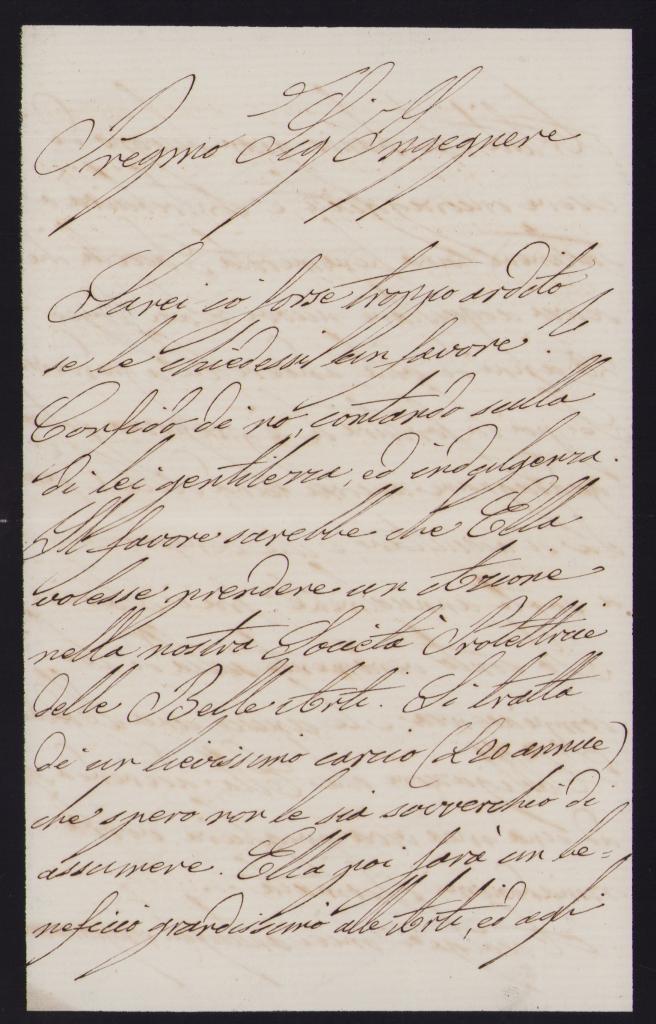 Pregmo Sig Ingegnere
Sarei io forse troppo ardito
se le chiedessi un favore?
Confido di no, contando sulla
di lei gentilezza, ed indulgenza.
Il favore sarebbe che Ella
volesse prendere un Azione
nella nostra Società Protettrice
delle Belle Arti. Si tratta
di un lievissimo carico (L 20 annue)
che spero non le sia soverchio di
assumere. Ella poi farà un be=
neficio grandissimo alle Arti, ed agli